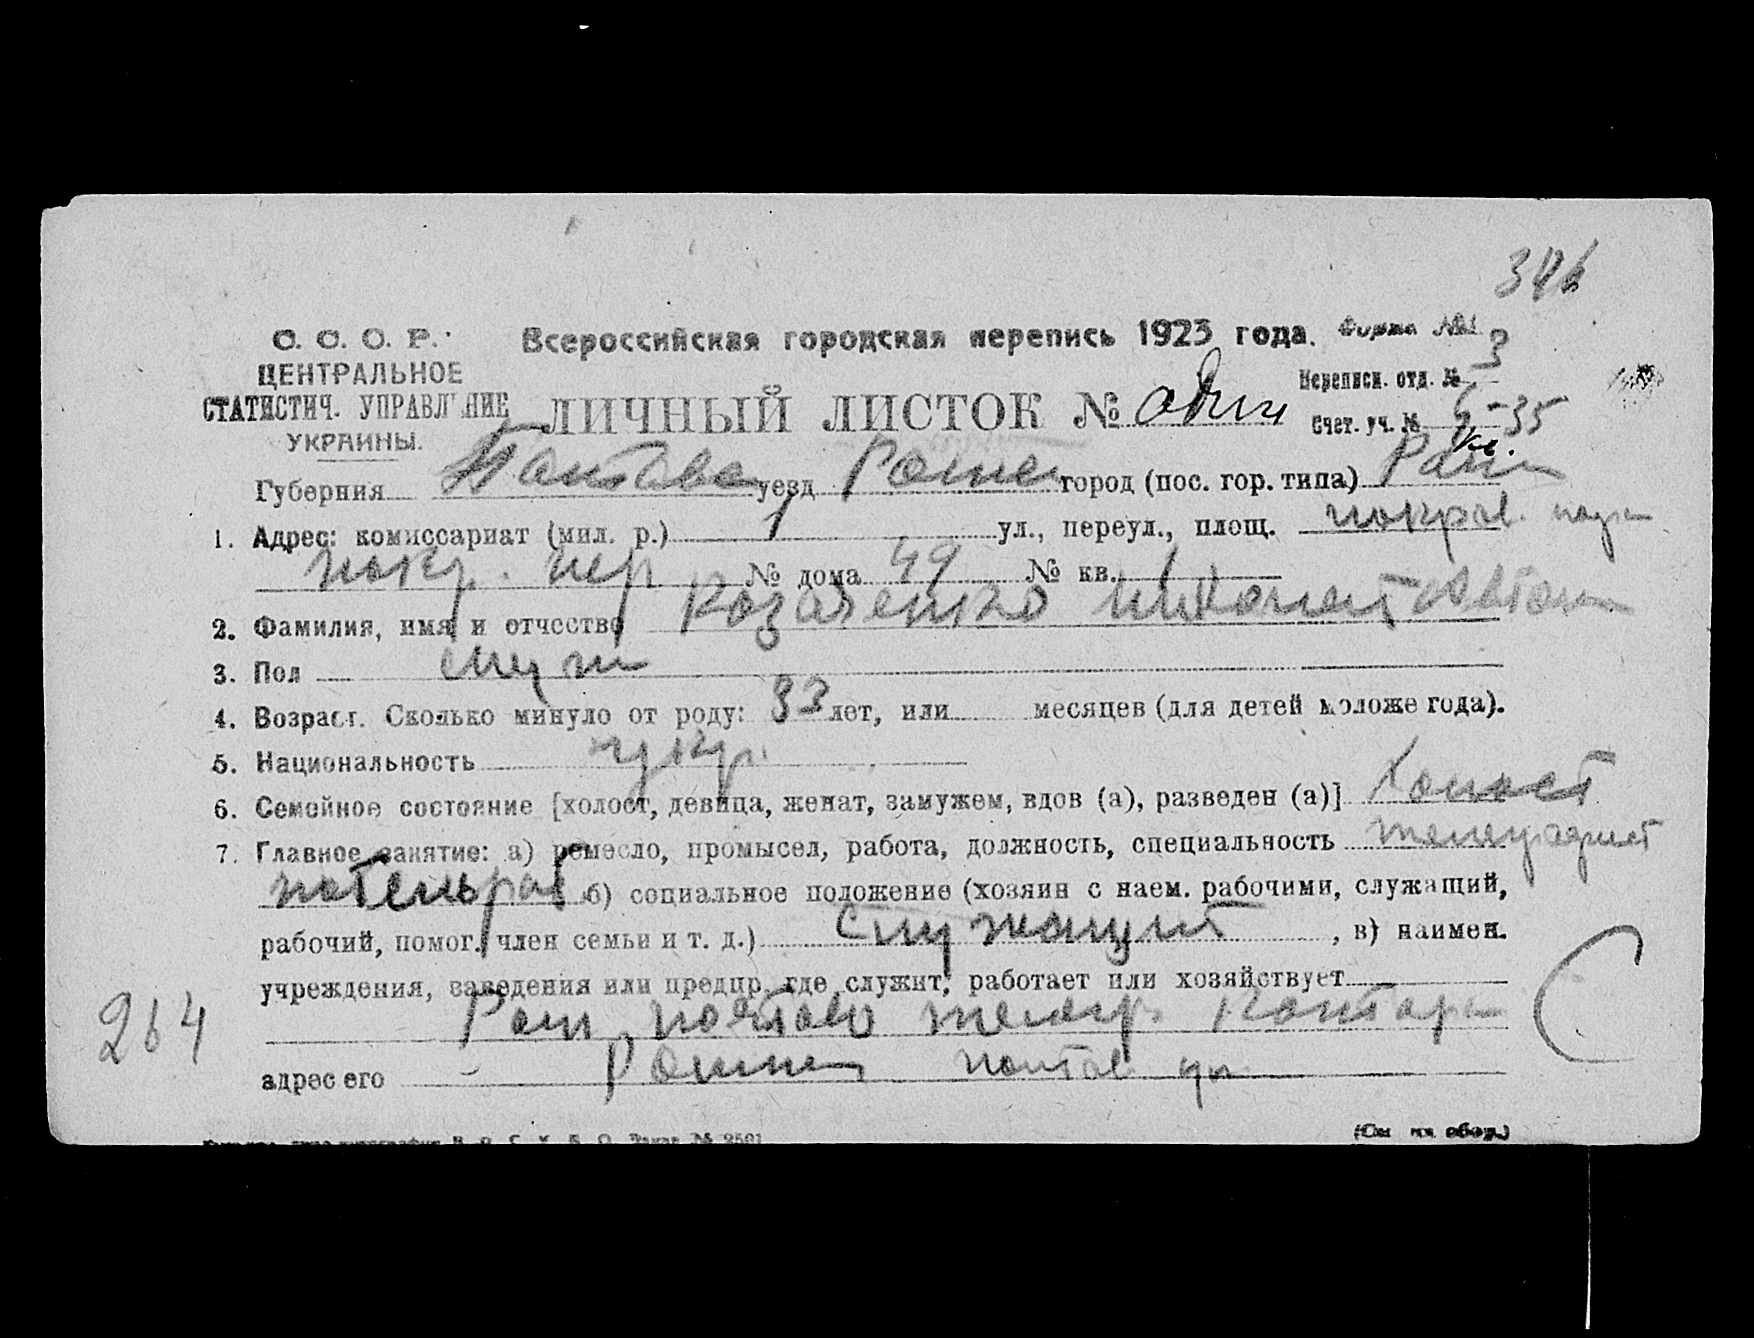 346
С. С. С. Р. Всероссийская городская перепись 1923 года. Форма №1
ЦЕНТРАЛЬНОЕ Переписн. отд. № 3
СТАТИСТИЧ. УПРАВЛЕНИЕ ЛИЧНЫЙ ЛИСТОК № один Счет. уч. № 6-35
УКРАИНЫ.
Губерния Полтава уезд Ромен город (пос. гор. типа) Ромн
1. Адрес: комиссариат (мил. р.) 1 ул., переул., площ. покров.
покр. пер № дома 49 № кв. 1
2. Фамилия, имя и отчество Козаченко
3. Пол муж
4. Возраст. Сколько минуло от роду: 33 лет, или месяцев (для детей моложе года).
5. Национальность укр.
6. Семейное состояние [холост, девица, женат, замужем, вдов (а), разведен (а)] Холост
7. Главное занятие: а) ремесло, промысел, работа, должность, специальность телеграфист
б) социальное положение (хозяин с наем. рабочими, служащий,
рабочий, помог. член семьи и т. д.) Служащий , в) наимен.
учреждения, заведения или предпр. где служит, работает или хозяйствует
264 Ром. почтово телегр. контора
адрес его Ромны почтов. ул
(См на обор.)